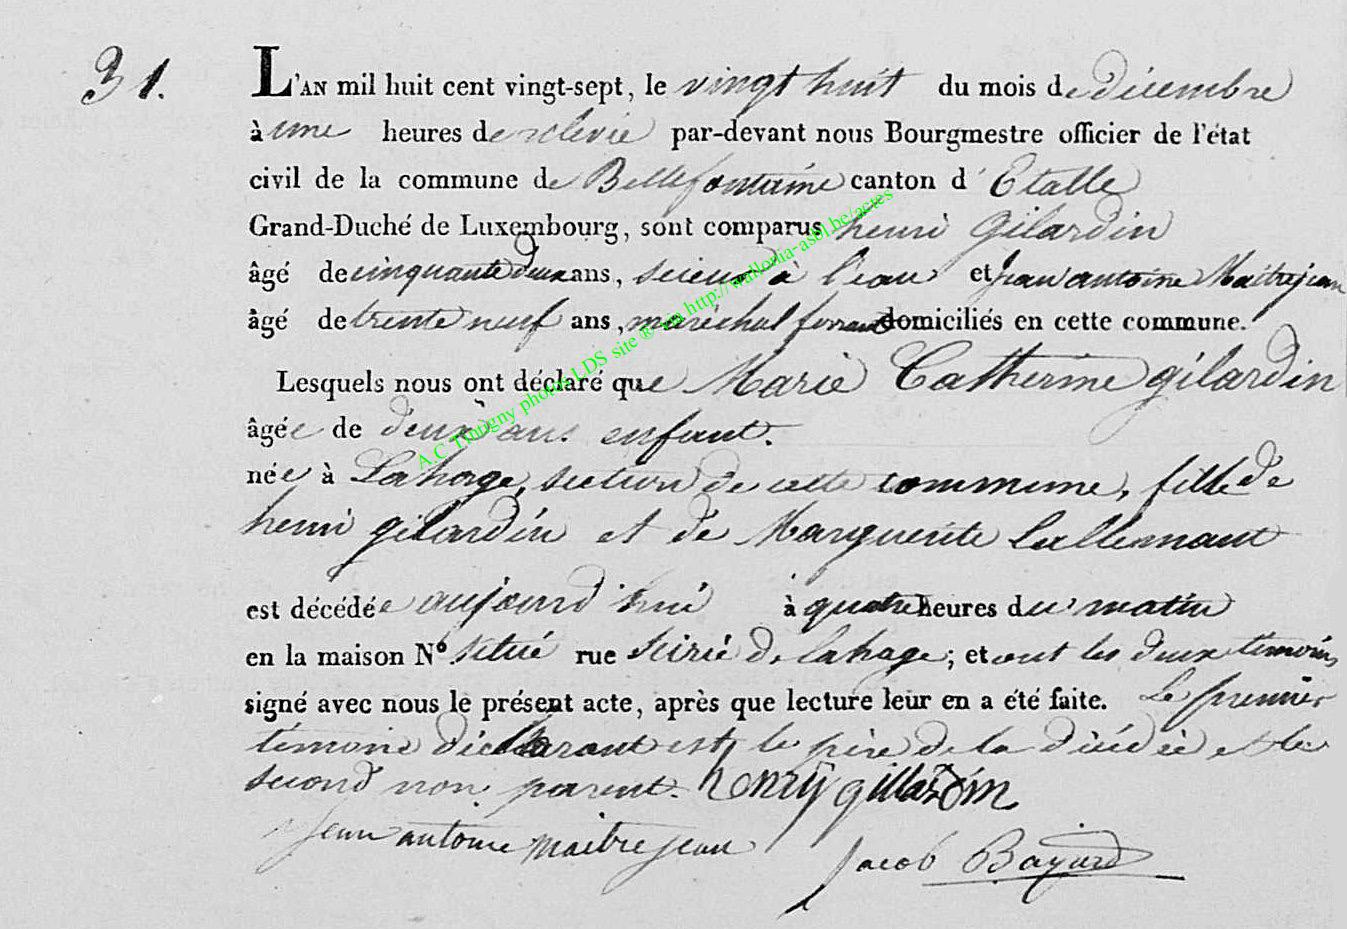 31.
L'AN mil huit cent vingt-sept, le vingt huit du mois de décembre
à une heures de relevée par-devant nous Bourgmestre officier de l'état
civil de la commune de Bellefontaine canton d'Etalle
Grand-Duché de Luxembourg, sont comparus henri gilardin
âgé de cinquante deux ans, scieur à l'eau et Jean antoine Maitrejean
âgé de trente neuf ans, maréchal ferrant domiciliés en cette commune.
Lesquels nous ont déclaré que Marie Catherine gilardin
âgée de deux ans enfant.
née à Lahage, section de cette commune, fille de
henri gilardin et de Marguerite Lallemant
est décédée aujourd'hui à quatre heures du matin
en la maison No situé rue Scirie de lahage; et ont les deux temoins
signé avec nous le présent acte, après que lecture leur en a été faite. Le premier
témoin déclarant est le père de la décédée et le
second non parent. henry gillardin
Jean antoine Maitrejean Jacob Bayard
A.C Tintigny photos LDS site ® via http://wallonia-asbl.be/actes